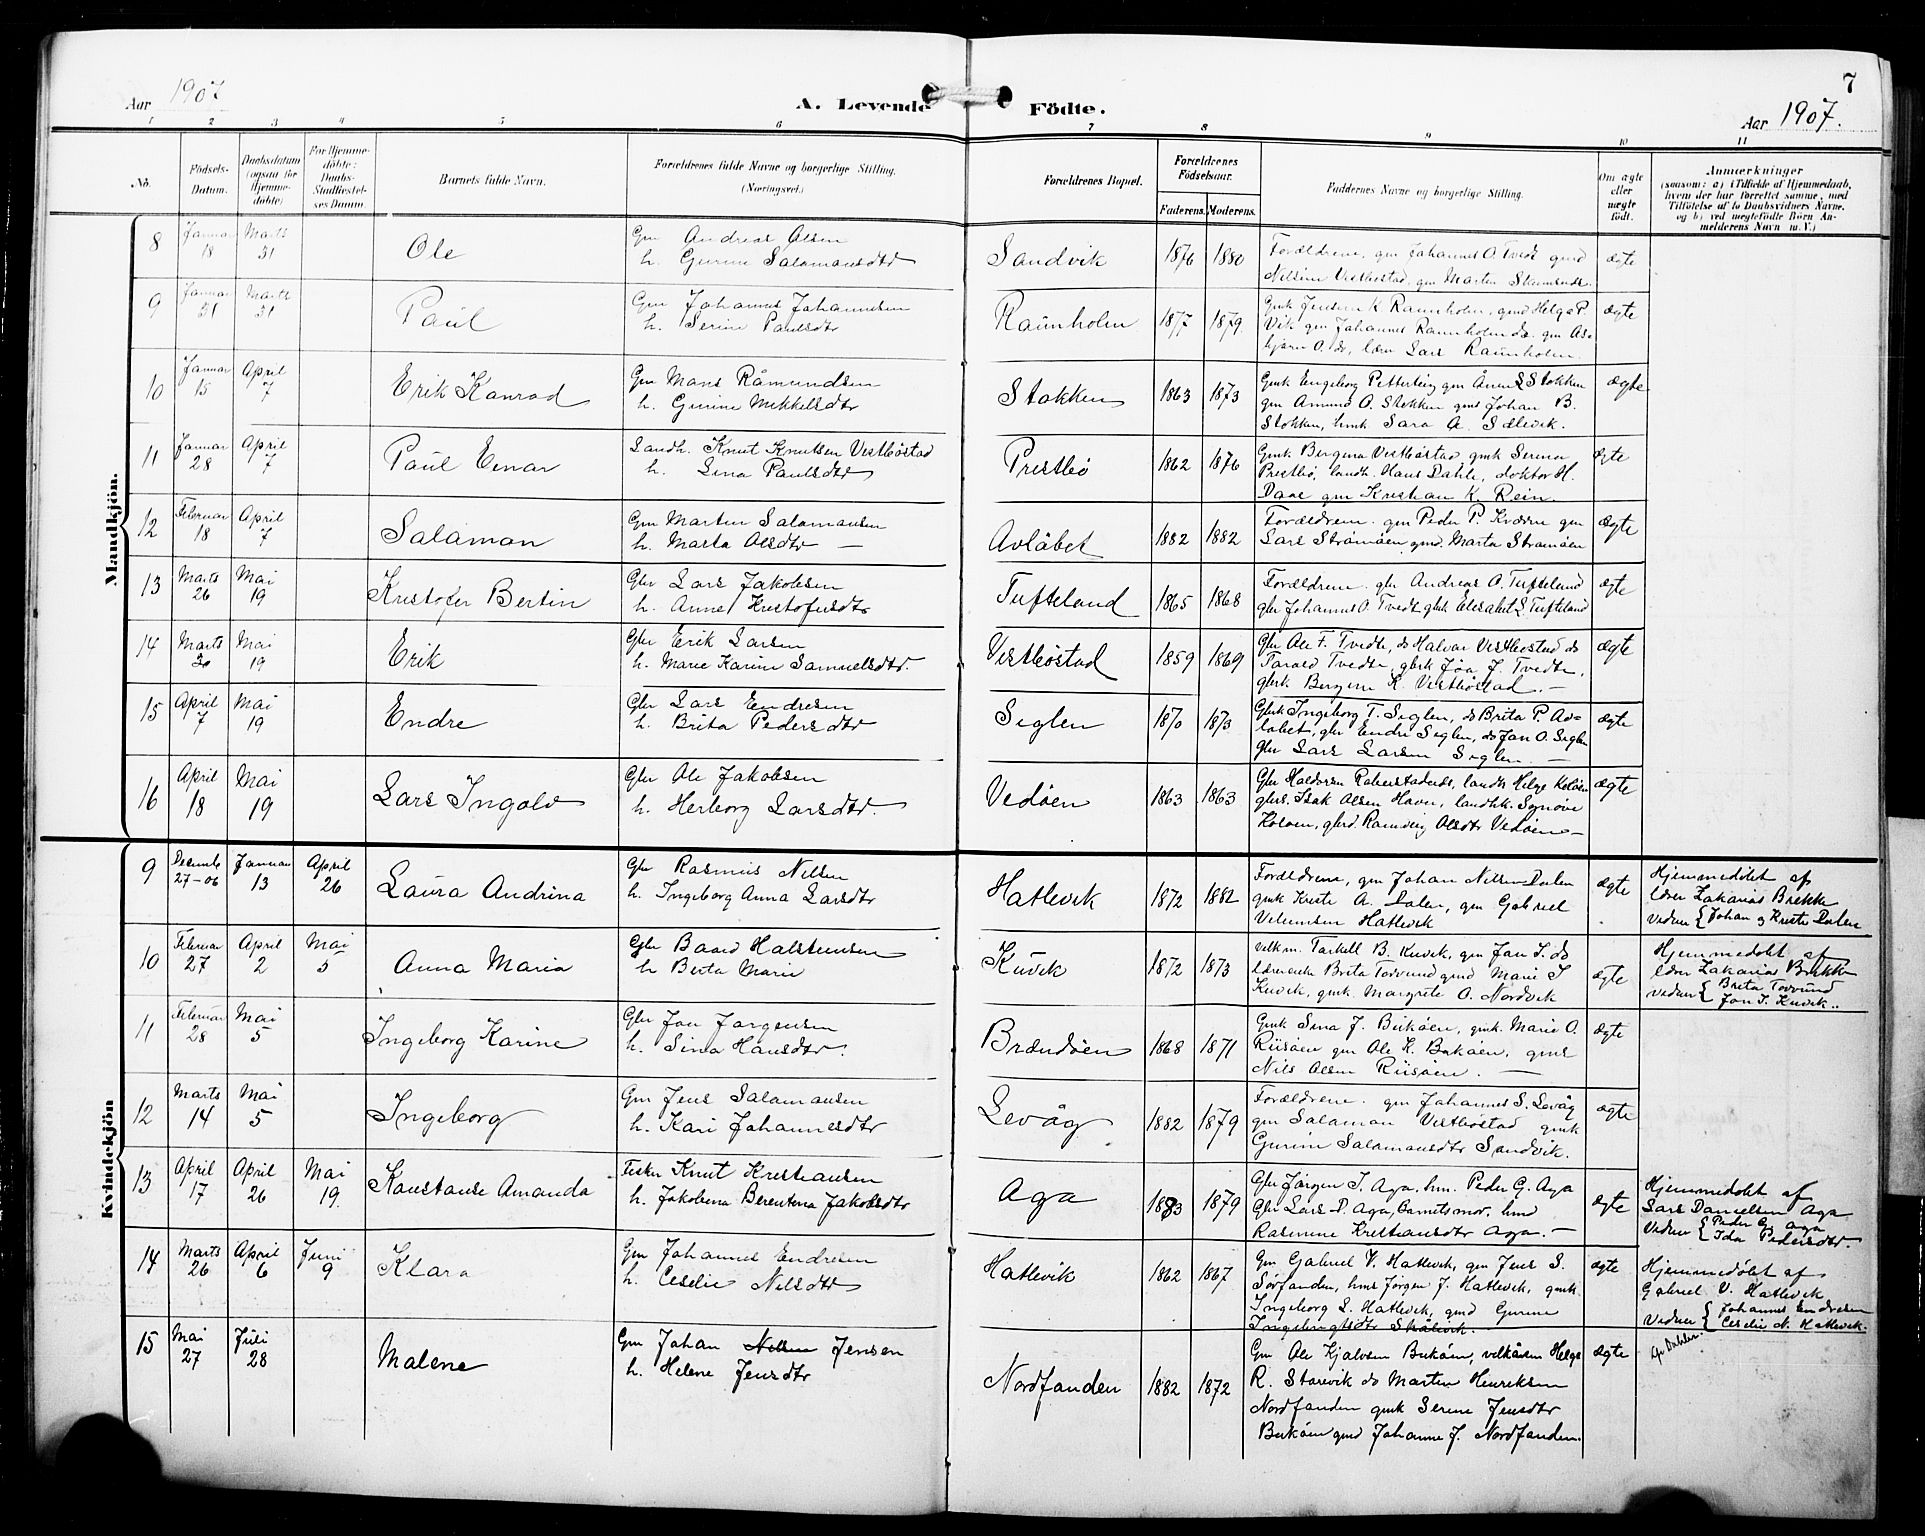 Aar 1907
A. Levende Födte.
7
Aar 1907.
1 2 3 4 5 6 7 8 9 10 11
No.
Födsels-Datum.
Daabsdatum (ogsaa for Hjemme-döbte)
For Hjemme-döbte: Daabs-Stadfæstel-ses Datum.
Barnets fulde Navn.
Forældrenes fulde Navne og borgerlige Stilling.
(Næringsvei.)
Forældrenes Bopæl.
Forældrenes Födselsaar.
Faderens. Moderens.
Faddernes Navne og borgerlige Stilling.
Om ægte eller uægte födt.
Anmærkninger
(saasom: a) i Tilfælde af Hjemmedaab,
hvem der har forrettet samme, med
Tilföielse af to Daabsvidners Navne.
og b) ved uægtefödte Börn An-
melderens Navn m. V.)
Mandkjön.
8 Januar 18 Marts 31 Ole
Gm Andreas Olsen
h. Gurine Salamonsdtr
Sandvik 1876 1880
Forældrene, gm Johannes O. Tvedt gmd
Nelsine Vestbøstad, gm Marten
ægte
9 Januar 31 Marts 31 Paul
Gm Johannes Johannesen
h. Serine Paulsdtr
Raunholm 1877 1879.
Gmk Jensine K Raunholm, gmd Helge P.
Vik gm Johannes Raunholm ds. gm As-
bjørn O. ds, lærer Lars Raunholm.
ægte
10 Januar 15 April 7 Erik Konrad
Gm Mons Råmundsen
h. Gurine Mikkelsdtr
Stokken 1863 1873
Gmk Engeborg Petterteig gm Ånen S Stokken
gm Amund O. Stokken gmd Johan B.
Stokken, hmk Sara A. Sælevik.
ægte
11 Januar 28 April 7 Paul Einar
Landh. Knut Knutsen Vestbøstad
h. Lina Paulsdtr
Prestbø 1862 1876
Gmk Bergina Vestbøstad gmk Serina
Prestbø, landh. Hans Dahle, doktor H.
Daae gm Kristian K. Rein.
ægte
12 Februar 18 April 7 Salamon
Gm Marten Salamonsen
h. Marta Olsdtr —
Avløbet 1882 1882
Forældrene. gm Peder P. Kværne gm
Lars Strømøen gmd. Marta Strømøen
ægte
13 Marts 26 Mai 19 Kristofer Bertin
Gbr Lars Jakobsen
h. Anne Kristofersdtr
Tufteland 1865 1868
Forældrene. gbr Andreas O. Tufteland
gbr Johannes O. Tvedt gbk Elisabet L Tufteland
ægte
14 Marts 30 Mai 19 Erik
Gbr Erik Larsen
h. Marie Karine Samuelsdtr.
Vestbøstad 1859 1869
Gbr Ole F. Tvedte, ds Halvor Vestbøstad ds
Tarald Tvedte, gbrk Jøa J. Tvedte,
gbrk Bergine K. Vestbøstad. —
ægte
15 April 7 Mai 19 Endre
Gbr Lars Endresen
h. Brita Pedersdtr
Siglen 1870 1873
Gbrk Ingeborg T. Siglen, ds Brita P. Av-
løbet, gbr Endre Siglen, ds Jan O. Siglen
gbr Lars Larsen Siglen. —
ægte
16 April 18 Mai 19 Lars Ingolv
Gbr Ole Jakobsen
h. Herborg Larsdtr.
Vedøen 1863 1863
Gbr Haldoren landh Helge Koløen
gbrs. Isak Olsen landhk. Sygnøve
Koløen, gbrd. Ranveig Olsdtr Vedøen —
ægte
Kvindekjön
9 Decemb 27–06 Januar 13 April 26 Laura Andrina
Gbr Rasmus Nilsen
h. Ingeborg Anna Larsdtr
Hatlevik 1872 1882
Forældrene, gm Johan Nilsen Dalen
gmk Kriste A. Dalen, gm Gabriel
Velemsen Hatlevik
ægte
Hjemmedøbt af
lærer Zakarias Brekke
vidner { Johan og Kriste Dalen
10 Februar 27 April 2 Mai 5 Anna Maria
Gbr Baard Halstensen
h Berta Marie
Kuvik 1872 1873
velkm. Torkell B. Kuvik, gm Jan I. ds
lærerenke Brita Torvund gmd Marie I
Kuvik, gmk. Margrete O. Nordvik
ægte
Hjemmedøbt af
lærer Zakarias Brekke
vidner { Brita Torvund
Jan I. Kuvik..
11 Februar 28 Mai 5 Ingeborg Karine
Gbr Jon Jørgensen
h. Sina Hansdtr.
Brændøen 1868 1871
Gmk Sina J. Bukøen, gmk. Marie O.
Riisøen gm Ole K. Bukøen, gms
Nils Olsen Riisøen. —
ægte
12 Marts 14 Mai 5 Ingeborg
Gm Jens Salamonsen
h. Kari Johannesdtr
Levåg 1882 1879
Forældrene. gm Johannes S. Levåg
gm Salamon Vestbøstad gmk
Gurine Salamonsdtr Sandvik.
ægte
13 April 17 April 26 Mai 19. Konstanse Amanda
Fisker Knut Kristiansen
h. Jakobina Berentina Jakobsdtr
Aga 1883 1879
Gbr Jørgen I. Aga, hm. Peder G. Aga
Gbr Lars D. Aga, Barnets mor, hm
Rasmine Kristiansdtr Aga. —
ægte
Hjemmedøbt af
Lars Danielsen Aga
Vidner { Peder G Aga
Ida Pedersdtr.
14 Marts 26 April 6 Juni 9 Klara
Gm Johannes Endresen
h. Ceselie Nilsdtr
Hatlevik 1862 1867
Gm Gabriel V. Hatlevik, gm Jens S.
Sørfanden, hms Jørgen J. Hatlevik, gmk.
Ingeborg L. Hatlevik, gmd Gurine
Ingebrigtsdtr Skålevik.
ægte
Hjemmedøbt af
Gabriel V. Hatlevik
Vidner { Johannes Endresen
Ceselie N. Hatlevik.
15 Mai 27 Juli 28 Malene
Gm Johan Nilsen Jensen
h. Helene Jensdtr
Nordfanden 1882 1872
Gm Ole Kjelvsen Bukøen, velkåren Helge
R. Storevik ds Marten Henriksen
Nordfanden gmk Serine Jensdtr
Bukøen gmd Johanne J. Nordfanden.
ægte